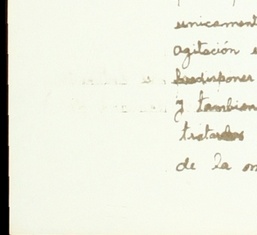 unicament
agitación e
predisponer
y tambian
tratarlos
de la om